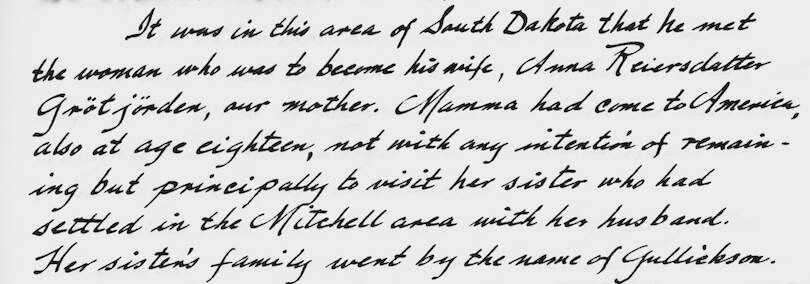 It was in this area of South Dakota that he met
the woman who was to become his wife, Anna Reiersdatter
Grötjörden, our mother. Mamma had come to America,
also at age eighteen, not with any intention of remain-
ing but principally to visit her sister who had
settled in the Mitchell area with her husband.
Her sister's family went by the name of Gullickson.